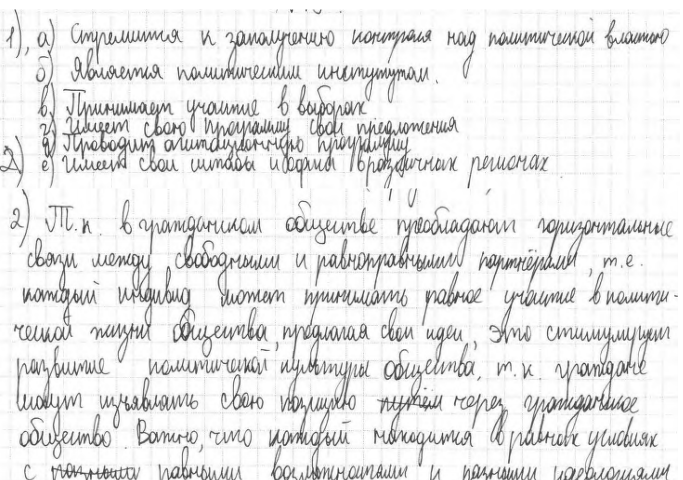 1), а) Стремится к заполучению контроля над политической властью
б) Является политическим институтом.
в) Принимает участие в выборах
г) Имеет свою программу свои предложения
д) Проводит агитационную программу
2) е) имеет свои штабы и офисы в различных регионах
2) Т.к. в гражданском обществе преобладают горизонтальные
связи между свободными и равноправными партнёрами, т.е.
каждый индивид может принимать равное участие в полити-
ческой жизни общества, предлагая свои идеи, это стимулирует
развитие политической культуры общества, т.к. граждане
могут изъявлять свою позицию путём через гражданское
общество. Важно, что каждый находится в равных условиях
с равными возможностями и разными идеологиями